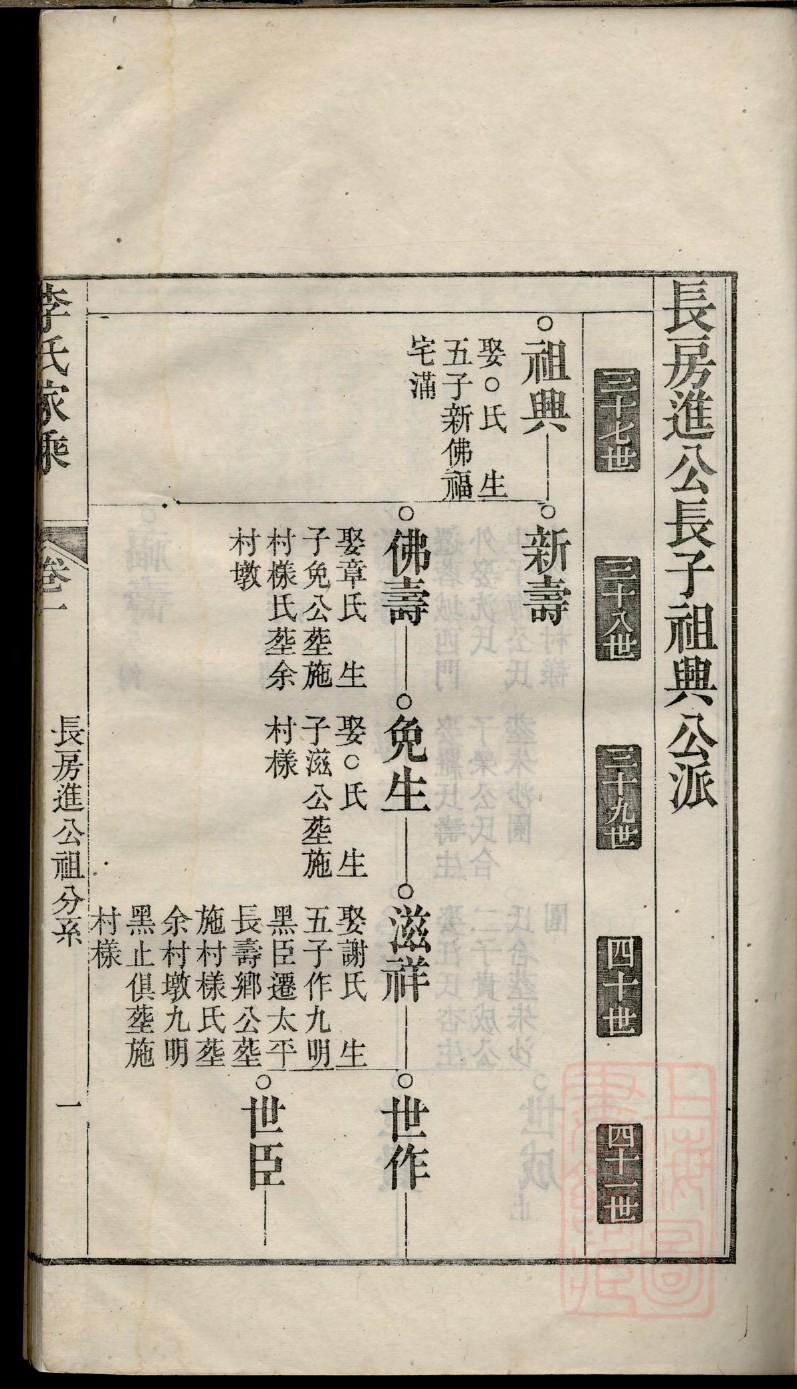 長房進公長子祖興公派
三十七世
三十八世
三十九世
四十世
四十一世
○祖興
娶○氏生
五子新佛福
宅滿
○新壽
○佛壽
娶章氏生
子免公塟施
村樣氏塟余
村墩
○免生
娶○氏生
子滋公塟施
村樣
○滋祥
娶謝氏生
五子作九明
黑臣遷太平
長壽鄉公塟
施村樣氏塟
余村墩九明
黑止俱塟施
村樣
○世作
○世臣
李氏家乘
卷一
長房進公祖分系
一